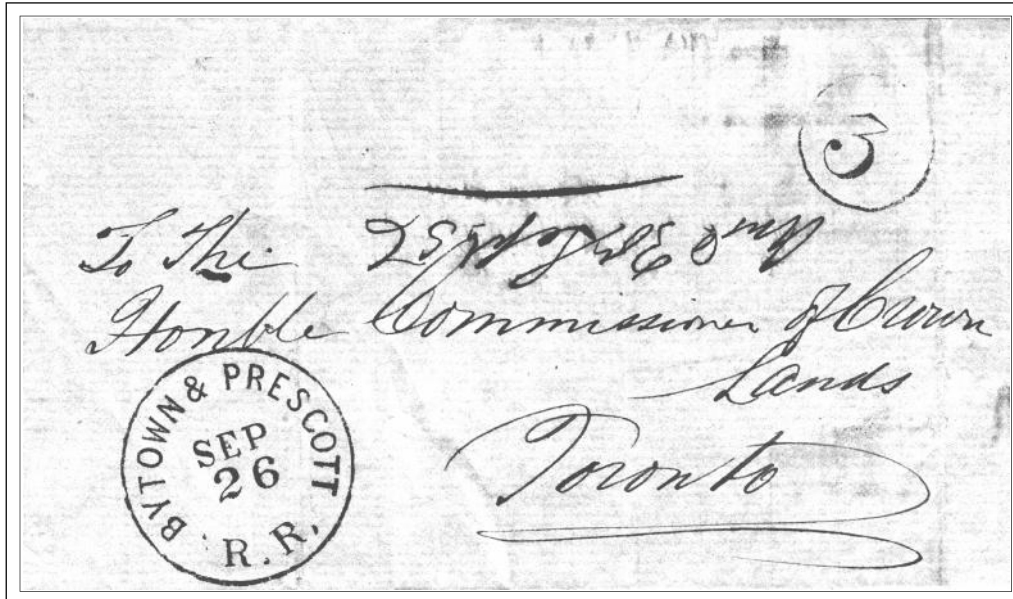 3
To The
Honble Commissioner of Crown
Lands
Toronto
BYTOWN & PRESCOTT
SEP
26
R. R.